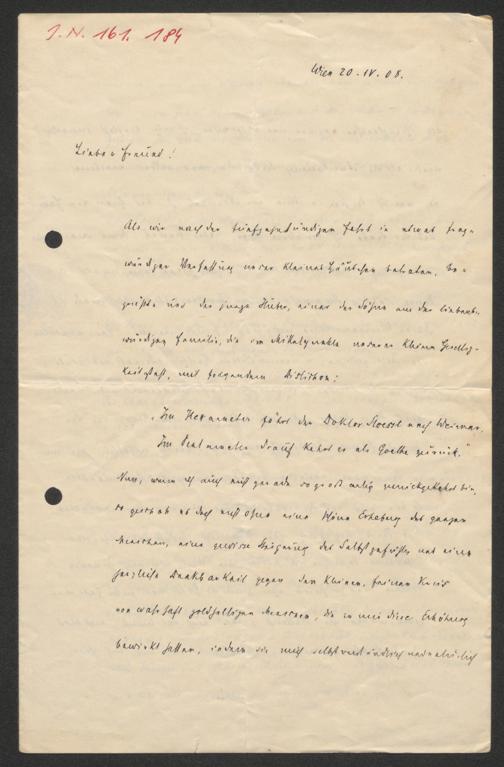 J.N. 161.184
Wien 20.IV.08.
Lieber Freund!
Als wir nach der fünfzehnstündigen Fahrt in etwas frag-
würdiger Verfassung unser kleines Häuschen betraten, be-
grüßte uns der junge Huber, einer der Söhne aus der liebens-
würdigen Familie, die im Mittelpunkte unserer kleinen Gesellig-
keit steht, mit folgendem Distichon:
„Im Hexameter fährt der Doktor Stoessl nach Weimar,
Im Pentameter drauf kehrt er als Goethe zurück."
Nun, wenn ich auch nicht gerade so großartig zurückgekehrt bin,
so geschah es doch nicht ohne eine schöne Erhebung des ganzen
Menschen, eine gewisse Steigerung des Selbstgefühles und eine
herzliche Dankbarkeit gegen den kleinen, feinen Kreis
von wahrhaft goldhaltigen Menschen, die in mir diese Erhöhung
bewirkt hatten, indem sie mich selbstverständlich und natürlich